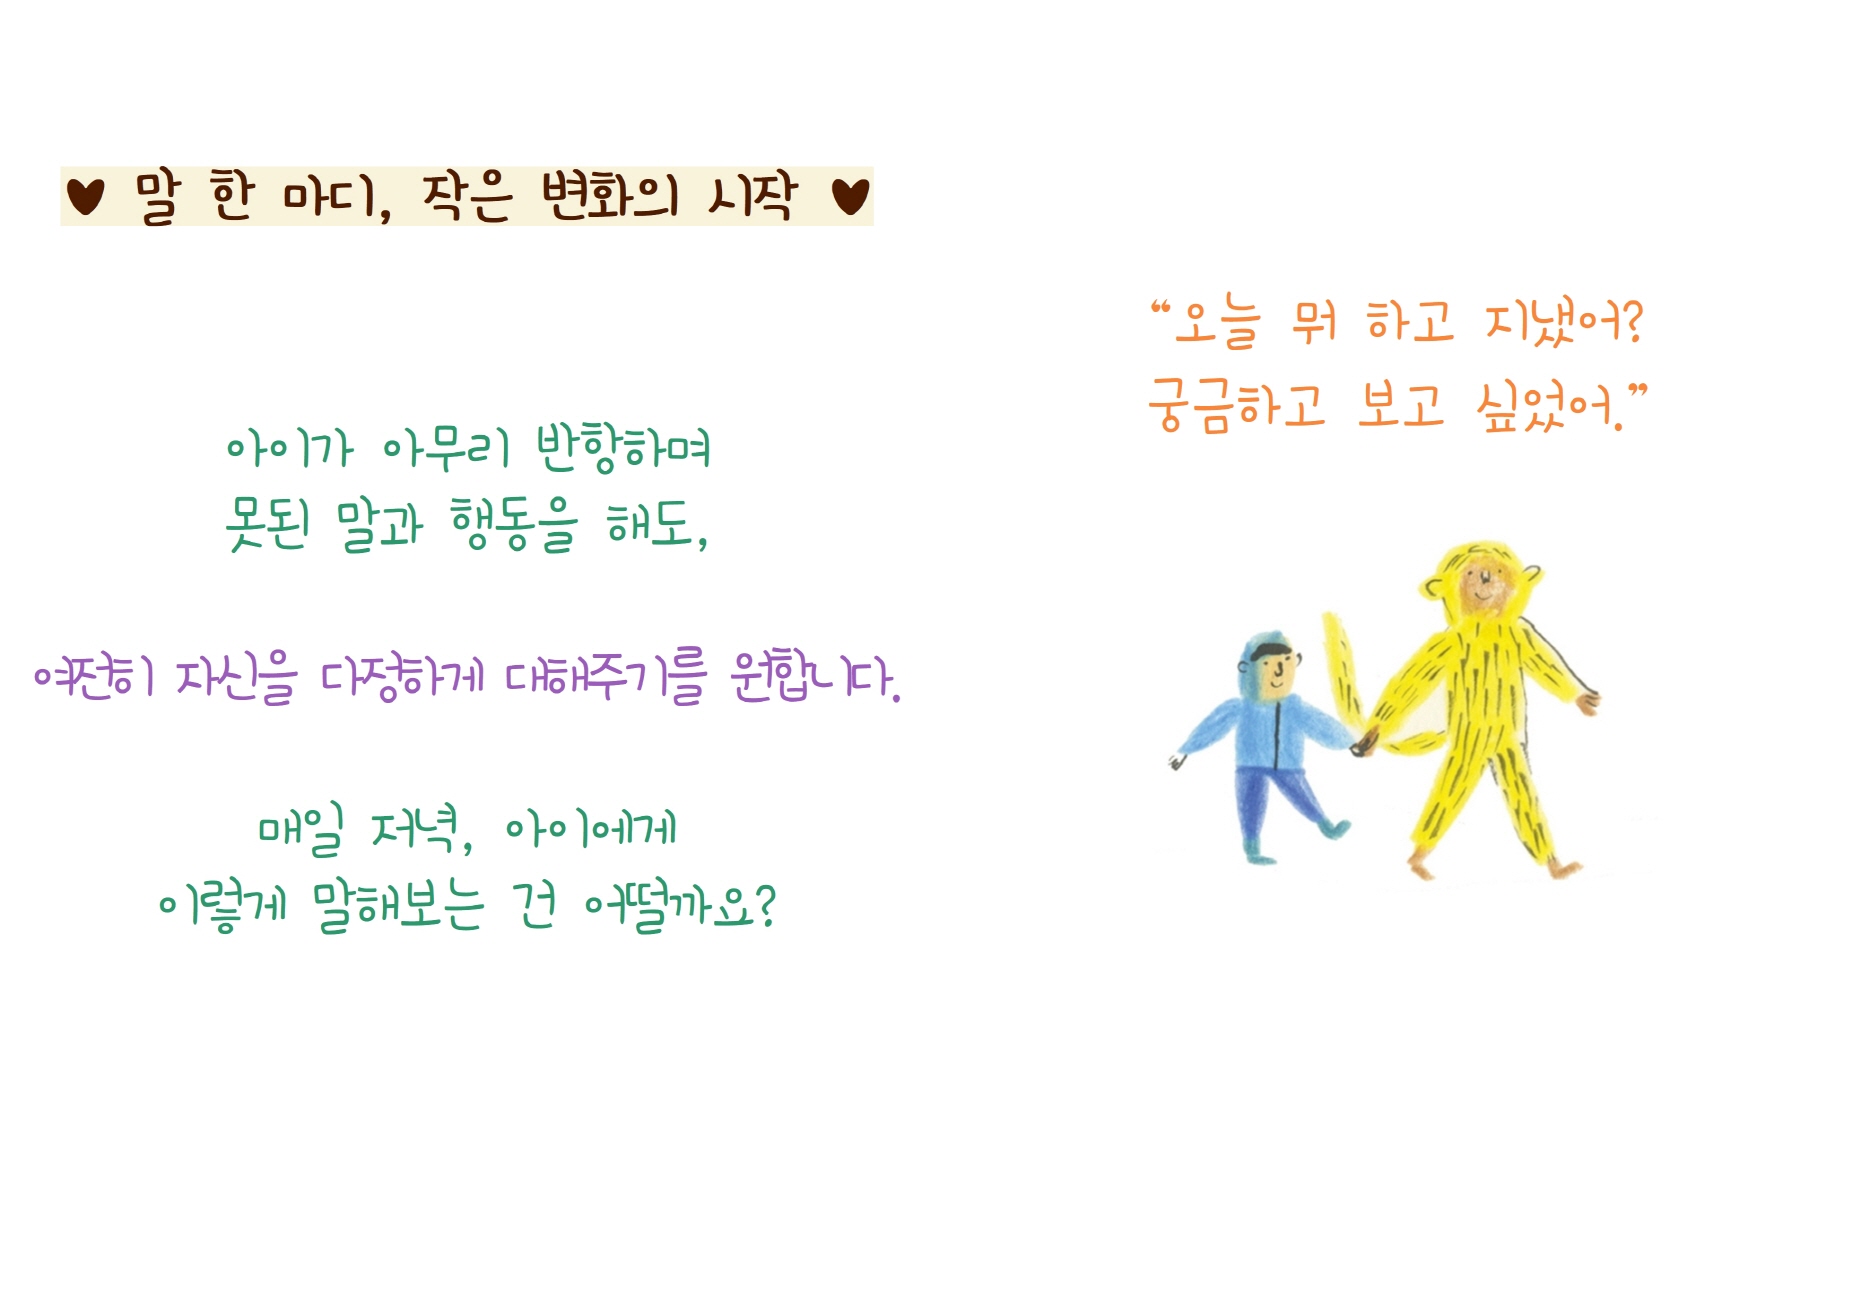 ♥ 말 한 마디, 작은 변화의 시작 ♥
아이가 아무리 반항하며
못된 말과 행동을 해도,
여전히 자신을 다정하게 대해주기를 원합니다.
매일 저녁, 아이에게
이렇게 말해보는 건 어떨까요?
“오늘 뭐 하고 지냈어?
궁금하고 보고 싶었어.”